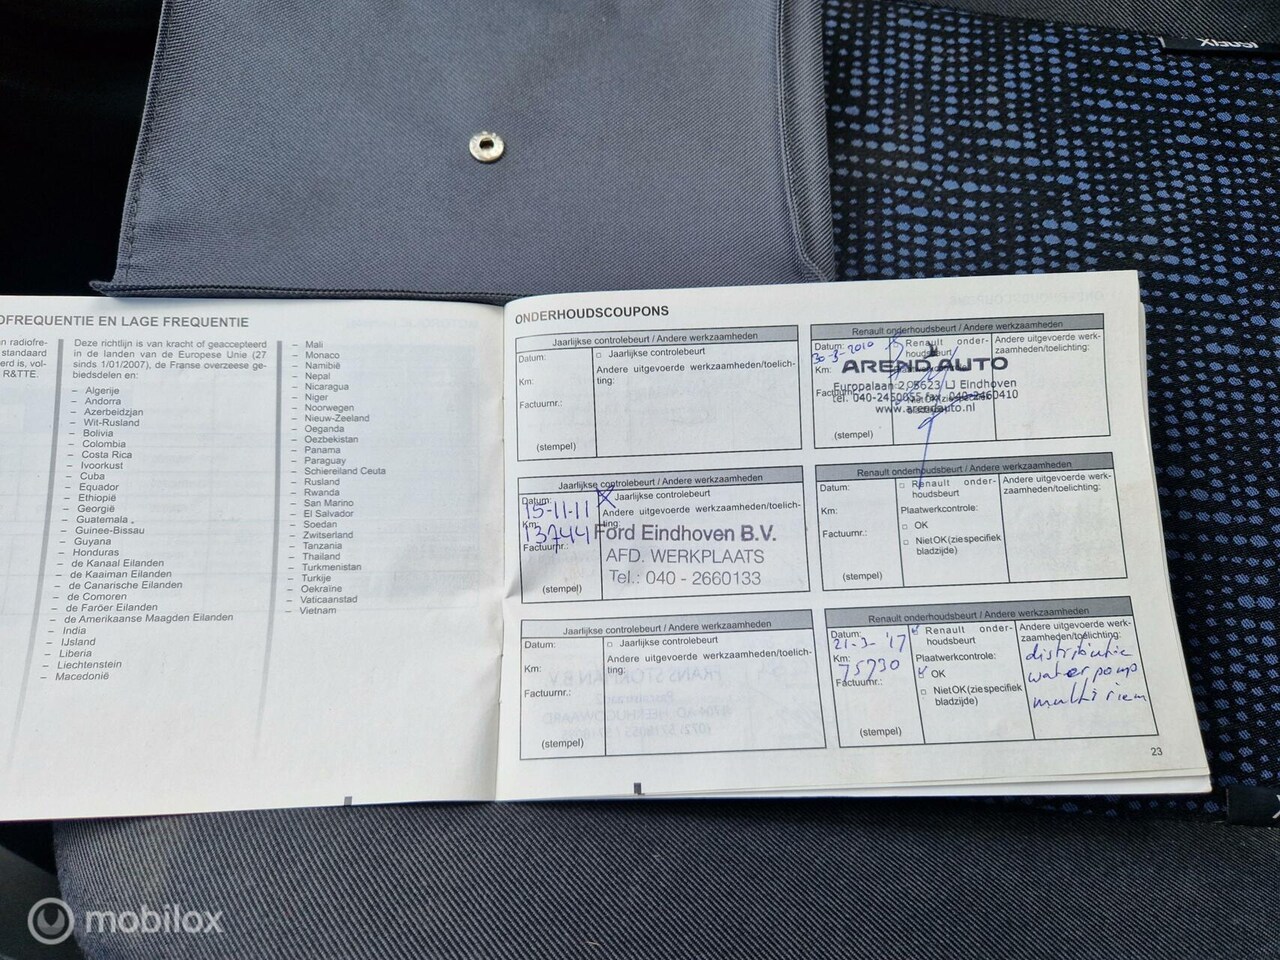 ISOFIX
OFREQUENTIE EN LAGE FREQUENTIE
n radiofre-
standaard
erd is, vol-
R&TTE.
Deze richtlijn is van kracht of geaccepteerd
in de landen van de Europese Unie (27
sinds 1/01/2007), de Franse overzeese ge-
biedsdelen en:
– Algerije
– Andorra
– Azerbeidzjan
– Wit-Rusland
– Bolivia
– Colombia
– Costa Rica
– Ivoorkust
– Cuba
– Equador
– Ethiopië
– Georgië
– Guatemala
– Guinee-Bissau
– Guyana
– Honduras
– de Kanaal Eilanden
– de Kaaiman Eilanden
– de Canarische Eilanden
– de Comoren
– de Faröer Eilanden
– de Amerikaanse Maagden Eilanden
– India
– IJsland
– Liberia
– Liechtenstein
– Macedonië
– Mali
– Monaco
– Namibië
– Nepal
– Nicaragua
– Niger
– Noorwegen
– Nieuw-Zeeland
– Oeganda
– Oezbekistan
– Panama
– Paraguay
– Schiereiland Ceuta
– Rusland
– Rwanda
– San Marino
– El Salvador
– Soedan
– Zwitserland
– Tanzania
– Thailand
– Turkmenistan
– Turkije
– Oekraïne
– Vaticaanstad
– Vietnam
ONDERHOUDSCOUPONS
Jaarlijkse controlebeurt / Andere werkzaamheden
Datum:
Km:
Factuurnr.:
(stempel)
Jaarlijkse controlebeurt
Andere uitgevoerde werkzaamheden/toelich-
ting:
Renault onderhoudsbeurt / Andere werkzaamheden
Datum:
30-3-2010
Km:
Factuurnr.:
(stempel)
Renault onder-
houdsbeurt
Andere uitgevoerde werk-
zaamheden/toelichting:
AREND AUTO
Europalaan 2, 5623 LJ Eindhoven
tel. 040-2450055 fax. 040-2460410
www.arendauto.nl
Jaarlijkse controlebeurt / Andere werkzaamheden
Datum:
15-11-11
Km:
13744
Factuurnr.:
(stempel)
Jaarlijkse controlebeurt
Andere uitgevoerde werkzaamheden/toelich-
ting:
Ford Eindhoven B.V.
AFD. WERKPLAATS
Tel.: 040 - 2660133
Renault onderhoudsbeurt / Andere werkzaamheden
Datum:
Km:
Factuurnr.:
(stempel)
Renault onder-
houdsbeurt
Plaatwerkcontrole:
OK
Niet OK (zie specifiek
bladzijde)
Andere uitgevoerde werk-
zaamheden/toelichting:
Jaarlijkse controlebeurt / Andere werkzaamheden
Datum:
Km:
Factuurnr.:
(stempel)
Jaarlijkse controlebeurt
Andere uitgevoerde werkzaamheden/toelich-
ting:
Renault onderhoudsbeurt / Andere werkzaamheden
Datum:
21-3-'17
Km:
75730
Factuurnr.:
(stempel)
Renault onder-
houdsbeurt
Plaatwerkcontrole:
OK
Niet OK (zie specifiek
bladzijde)
Andere uitgevoerde werk-
zaamheden/toelichting:
distributie
waterpomp
multiriem
23
mobilox